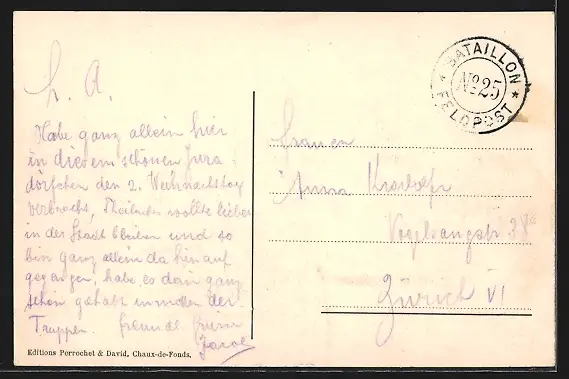 L. A.
Habe ganz allein hier
in diesem schönen Jura-
dörfchen den 2. Weihnachtstag
verbracht, wollte lieber
in der Stadt bleiben und so
bin ganz allein da hinauf
gegangen, habe es dan ganz
schön gehabt inmitten der
Truppen. freundl.
Editions Perrochet & David, Chaux-de-Fonds.
BATAILLON
No 25
FELDPOST
Frauen
Anna
Vogelsangstr 38
Zürich VI